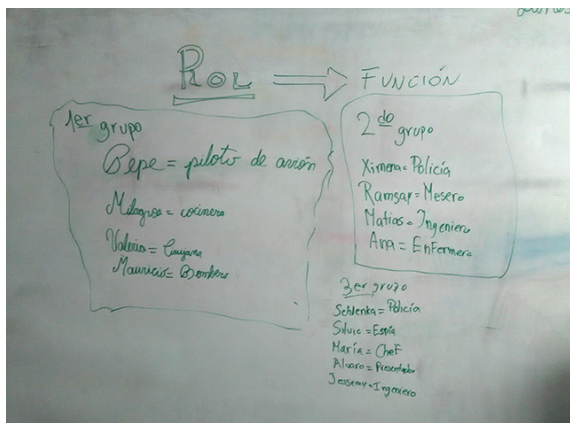 Rol ⇒ Función
1er grupo
Pepe = piloto de avión
Milagros = cocinera
Valeria = Cirujana
Mauricio = Bombero
2do grupo
Ximena = Policía
Ramsay = Mesero
Matias = Ingeniero
Ana = Enfermera
3er grupo
Schlenka = Policía
Silvic = Espía
María = Chef
Alvaro = Presentador
= Ingeniero